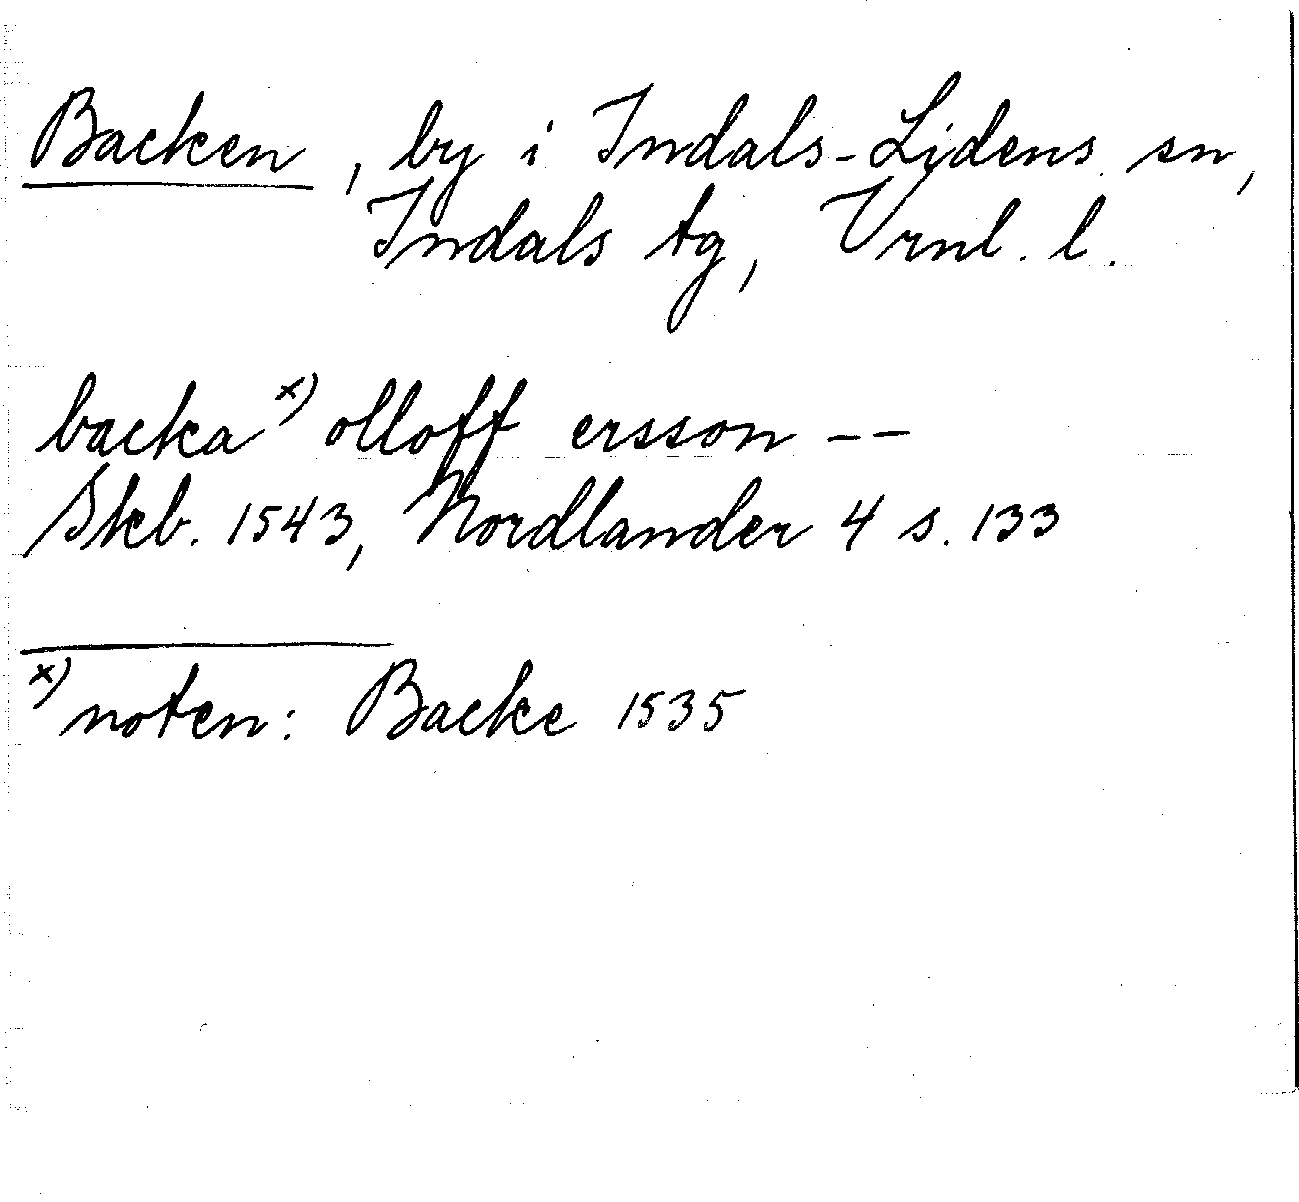 Backen, by i Indals-Lidens sn,
Indals tg, Vrnl. l.
backa x) olloff ersson --
Skb. 1543, Nordlander 4 s. 133
x) noten: Backe 1535